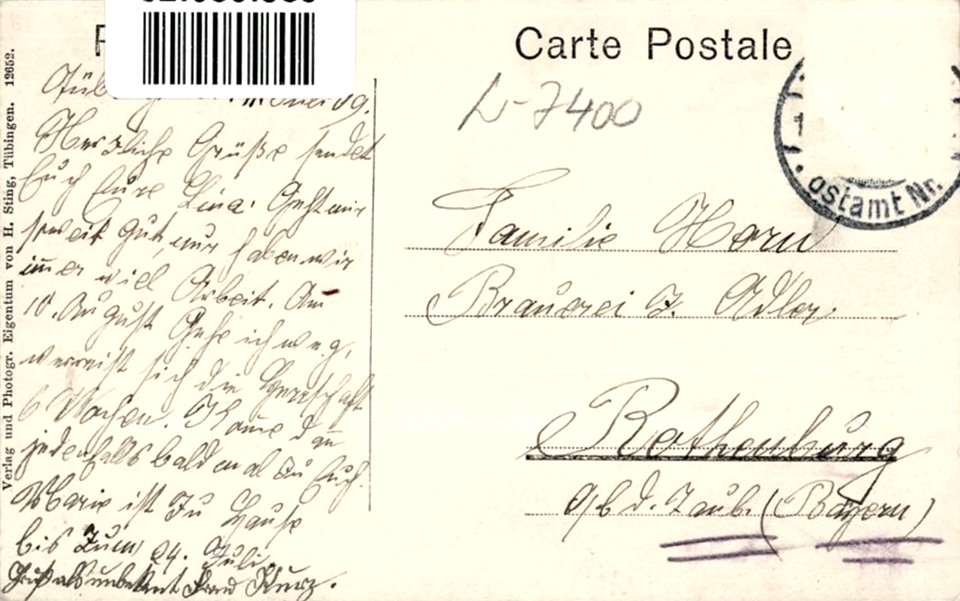 Carte Postale
L-7400
ostamt Nr.
Verlag und Photogr. Eigentum von H. Sting, Tübingen. 12652.
Herzliche Grüße sendet
Euch Eure Lina. Geht mir
soweit gut, nur haben wir
immer viel Arbeit. Am
10. August gehe ich weg,
verreist sich die Herrschaft
6 Wochen. Komme dan
jedenfalls bald mal zu Euch.
Marie ist zu Hause
bis zum 24. Juli.
Gruß als unbekannt Kurz.
Familie Horn
Brauerei z. Adler
Rothenburg
o/b d. Taub. (Bayern)